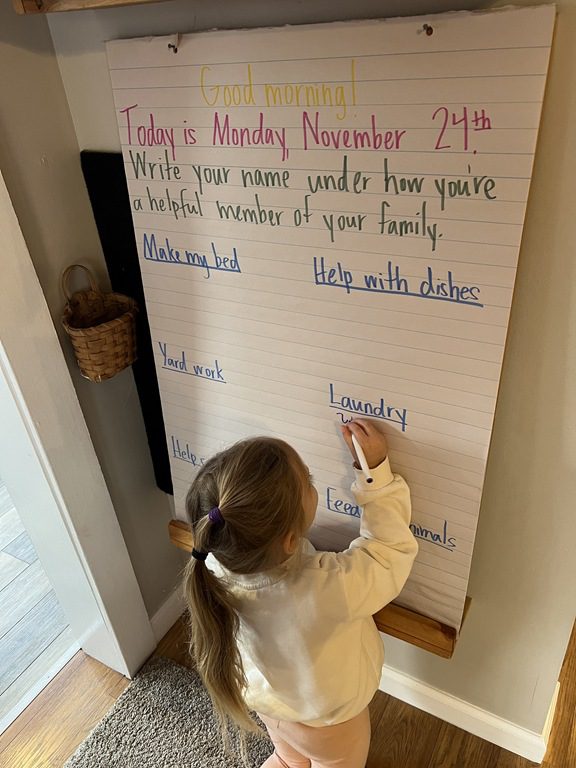 Good morning!
Today is Monday, November 24th.
Write your name under how you're
a helpful member of your family.
Make my bed
Help with dishes
Yard work
Laundry
Help
Feed